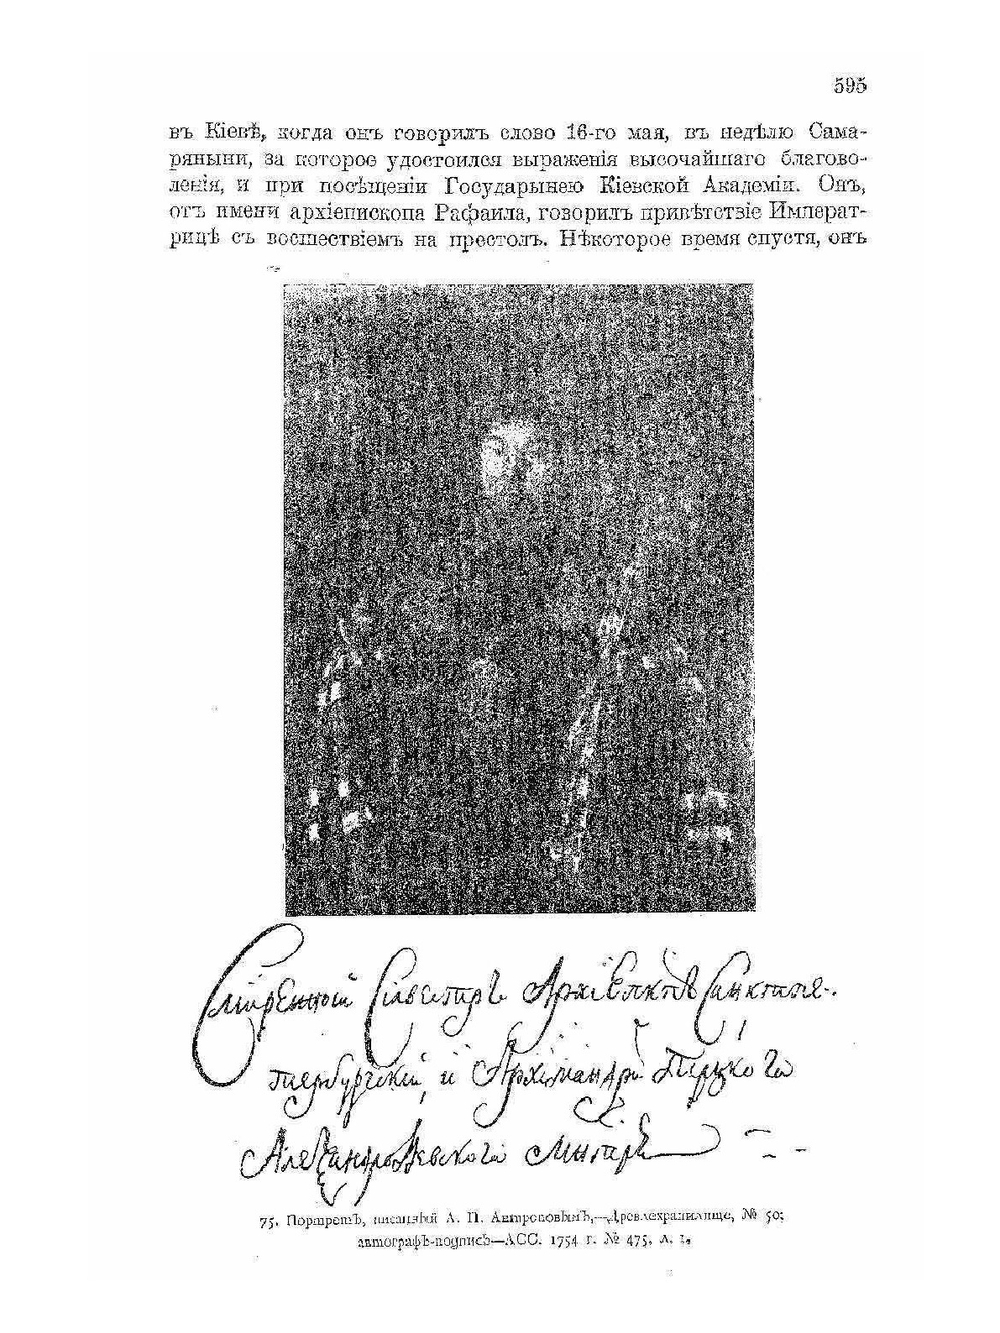 595
въ Кіевѣ, когда онъ говорилъ слово 16-го мая, въ недѣлю Сама-
ряныни, за которое удостоился выраженія высочайшаго благово-
ленія, и при посѣщеніи Государынею Кіевской Академіи. Онъ,
отъ имени архіепископа Рафаила, говорилъ привѣтствіе Императ-
рицѣ съ восшествіемъ на престолъ. Нѣкоторое время спустя, онъ
Смиренный Сілвестръ Архіепкпъ Санктпе-
тербургскій и Архімандрі Тпрцкого
Александроневского
75. Портретъ, писанный А. П. Антроповымъ,—Древлехранилище, № 50;
автографъ-подпись—АСС. 1754 г. № 475, л. 1.